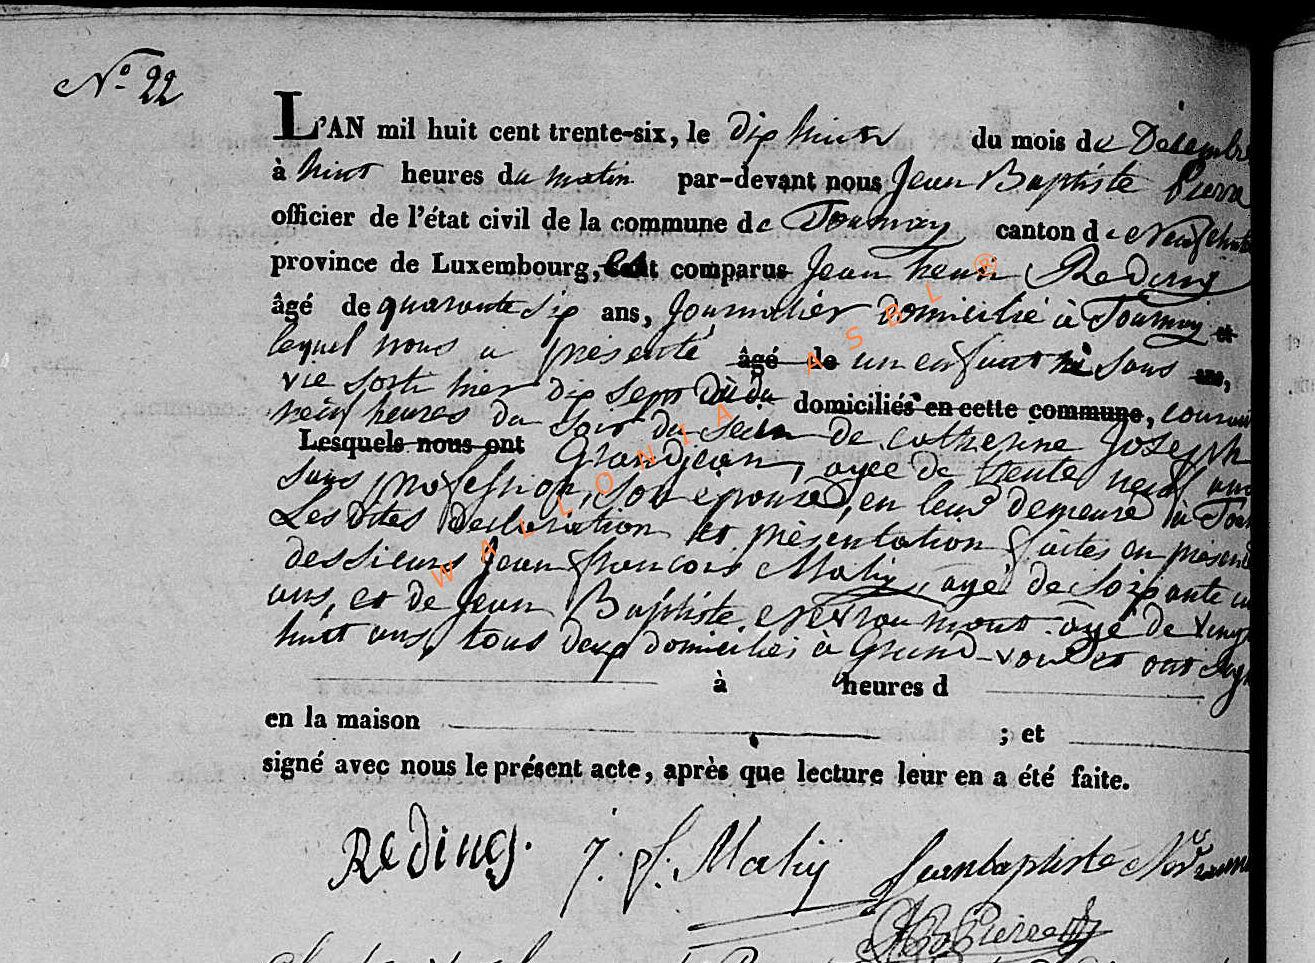 N° 22
L'AN mil huit cent trente-six, le dix huit du mois de Décembre
à huit heures du matin par-devant nous Jean Baptiste Pierra
officier de l'état civil de la commune de Tournay canton de Neufchat
province de Luxembourg, est comparu Jean henri Reding
âgé de quarante six ans, Journalier domicilié à Tournay et
lequel nous a présenté âgé de un enfant sans ans,
vie sorti hier dix sept du domiciliés en cette commune, courant
heures du soir du sein de catherine Joseph
Lesquels nous ont Grandjean, agée de trente neuf ans
sans profession, son épouse, en leur demeure à Tour
Les dites déclaration et présentation faites en présen
des sieurs Jean françois Mahy, agé de soixante
ans, et de Jean Baptiste agé de vingt
huit ans, tous deux domiciliés à Grand-voir et ont sign
à heures d
en la maison ; et
signé avec nous le présent acte, après que lecture leur en a été faite.
Reding. J. f. Mahy Jeanbaptiste
WALLONIA ASBL ®